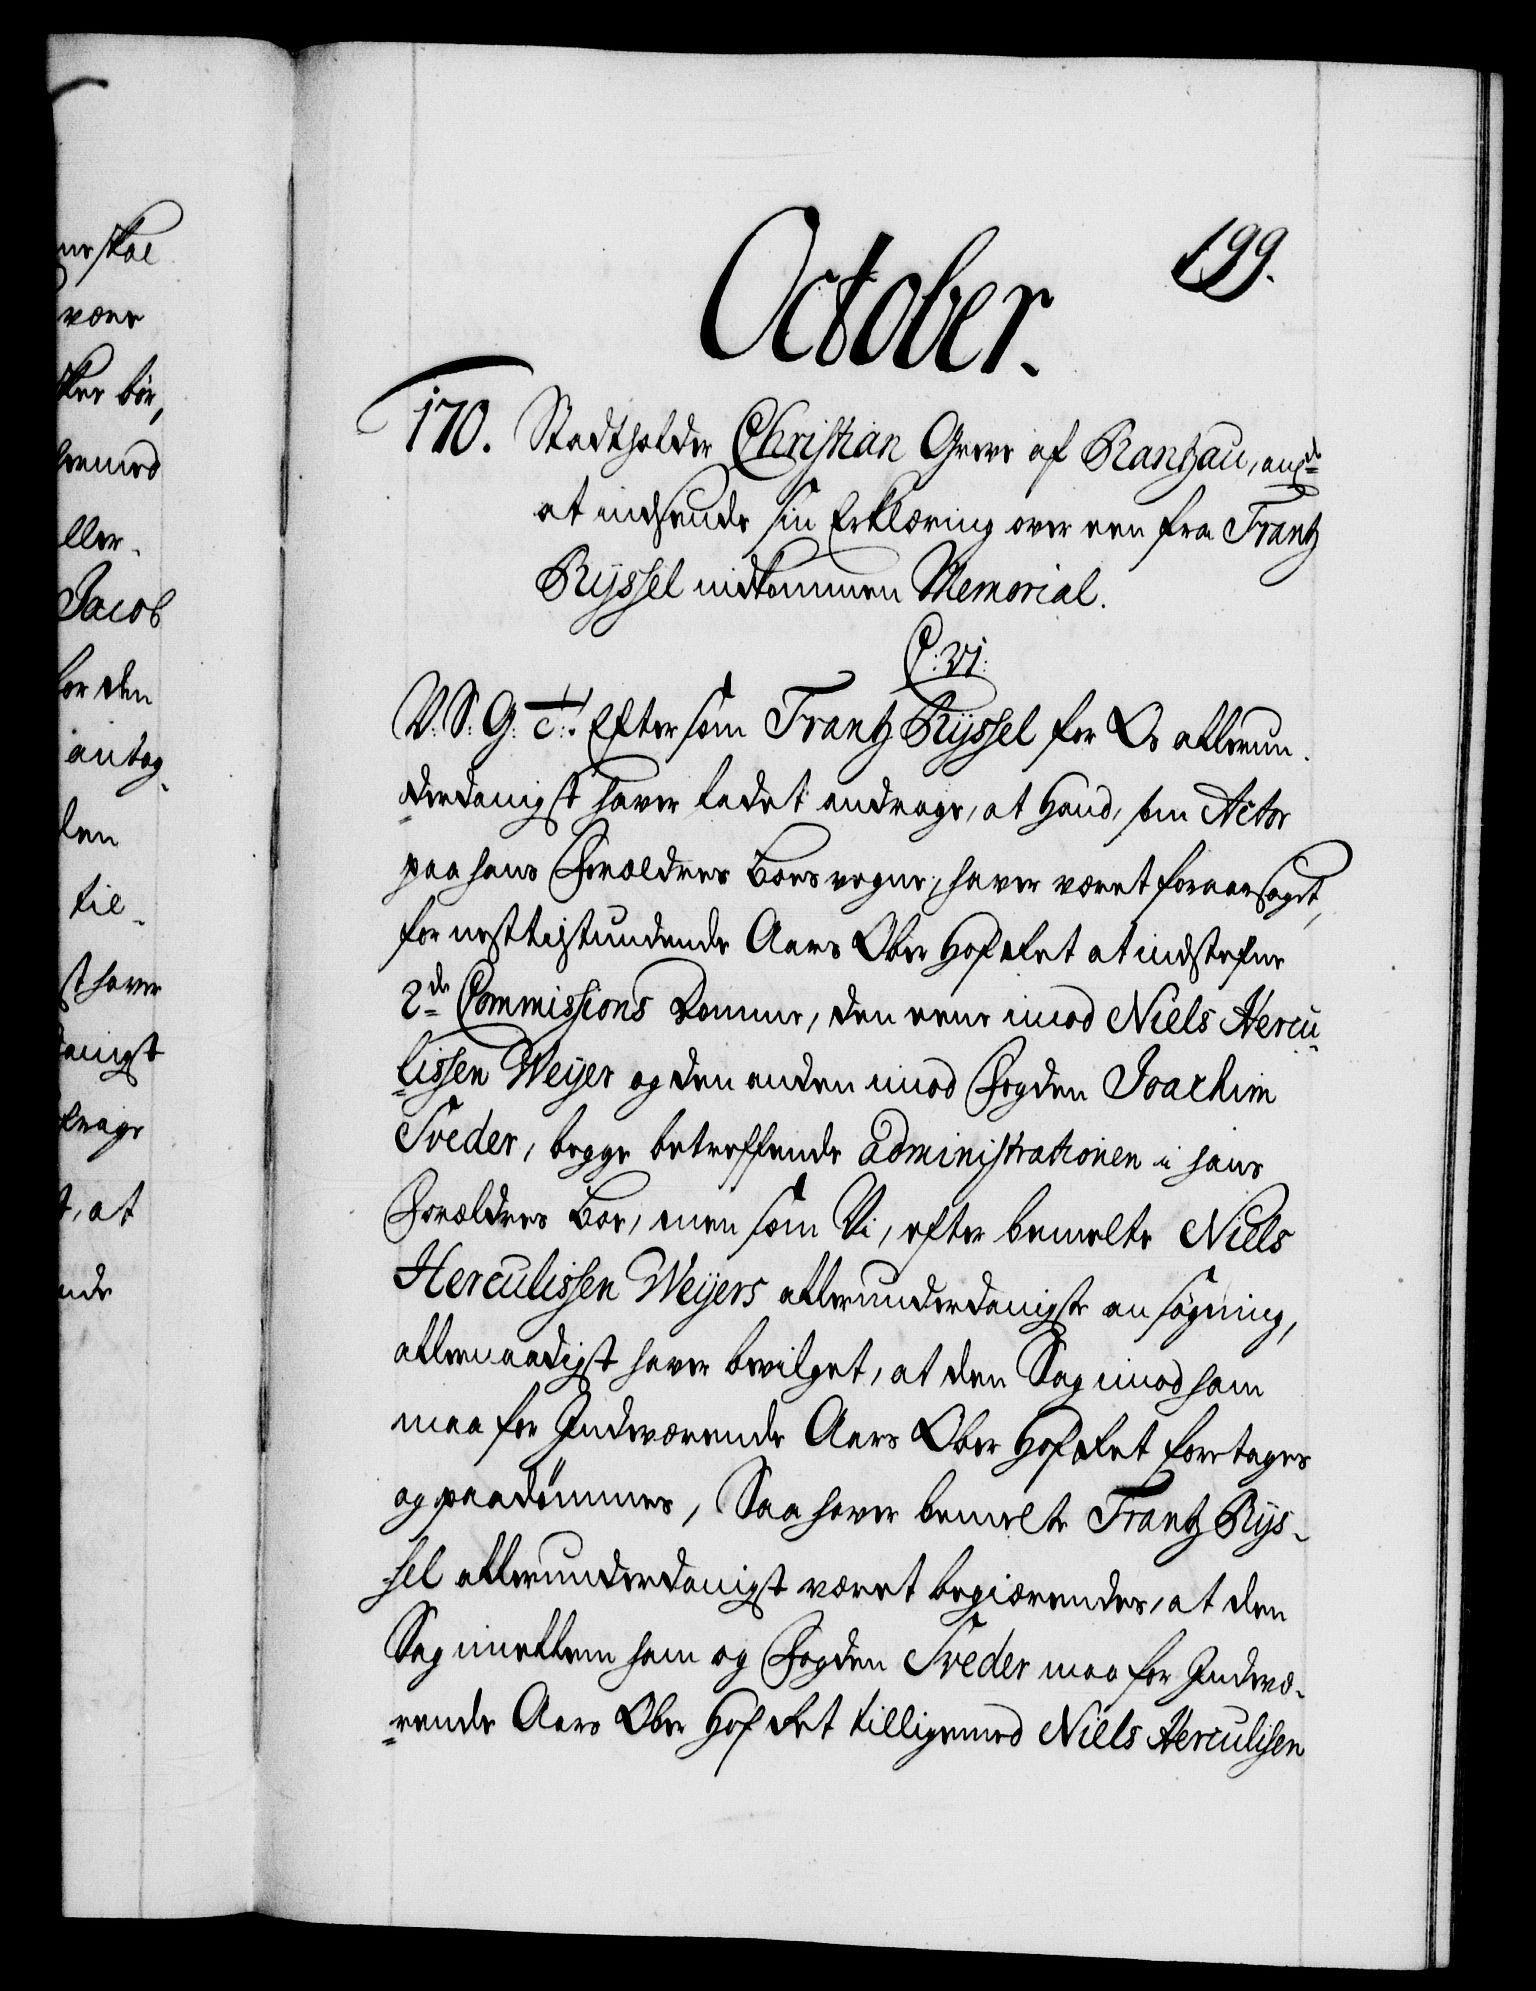 ne skal
være
sker bör,
hermed
ller.
Jacob
for den
antag-
den
til-
st haver
danigst
t, at
nde
October.
199.
170. Stadtholder Christian Greve af Rantzau, angde
at indsende sin Erklæring over een fra Frantz
Ryssel indkommen Memorial.
C: VI:
V: S: G: &c:. Eftersom Frantz Ryssel for Os allerun-
derdanigst haver ladet andrage, at hand, som Actor
paa hans Forældres Boes vegne, haver været foraarsaget,
for nesttilstundende Aars Ober Hof Ret at indstefne
2de Commissions Domme, den eene imod Niels Hercu-
lissen Weyer og den anden imod Fogden Joachim
Sveder, begge betreffende administrationen i hans
Forældres Boe, men som Vi, efter bemelte Niels
Herculissen Weyers allerunderdanigste ansögning,
allernaadigst haver bevilget, at den Sag imod ham
maa for Indeværende Aars Ober Hof Ret foretages
og paadömmes, Saa haver bemelte Frantz Rys-
sel allerunderdanigst været begiærendes, at den
Sag imellem ham og Fogden Sveder maa for Indevæ-
rende Aars Ober Hof Ret tilligemed Niels Herculisen